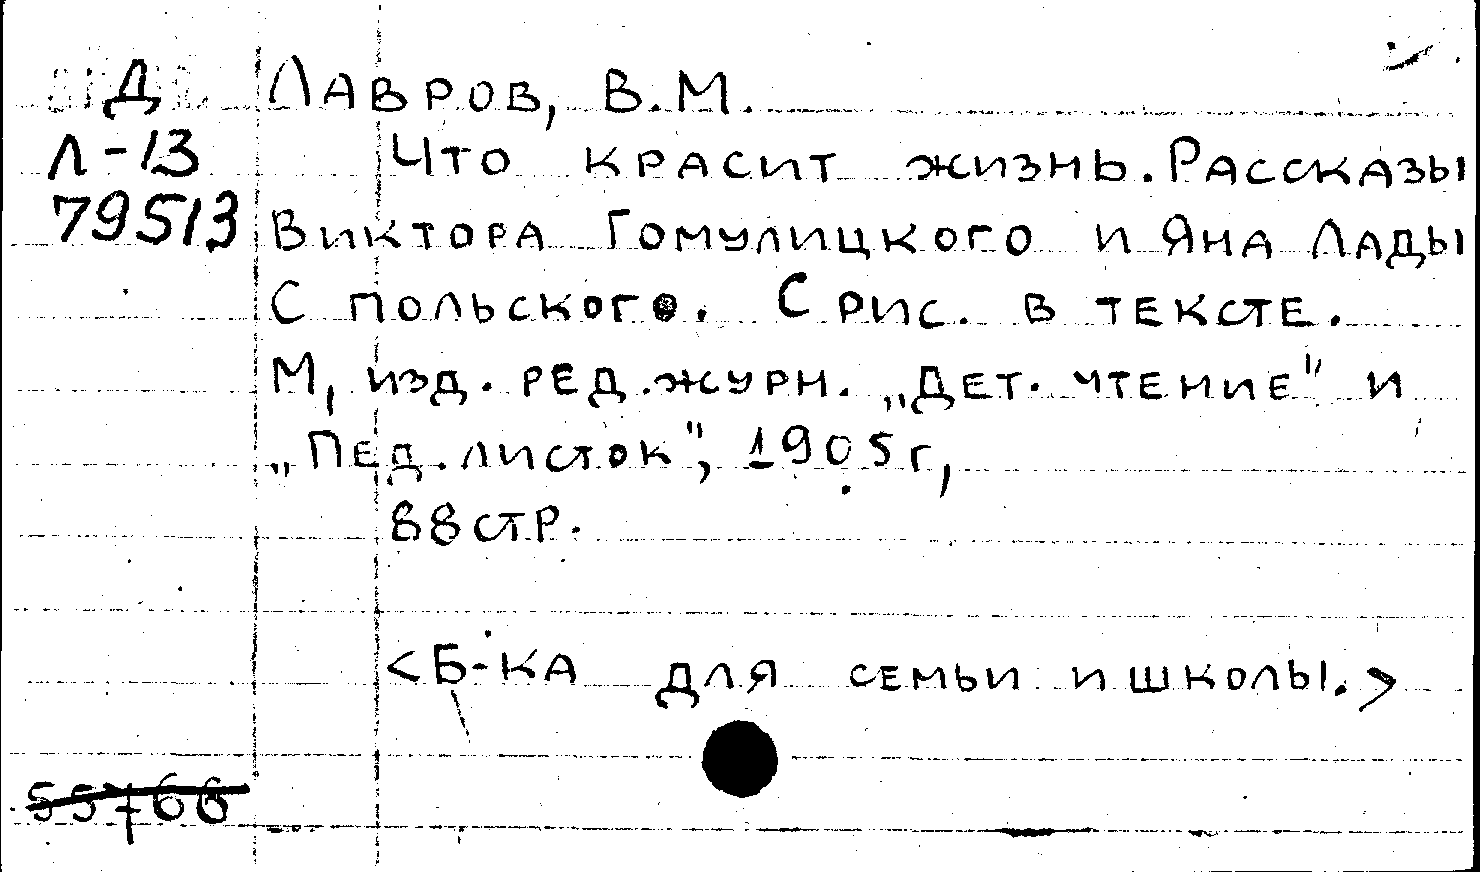 Д Лавров, В.М.
Л-13 Что красит жизнь. Рассказы
79513 Виктора Гомулицкого и Яна Лады
С польского. С рис. в тексте.
М, изд. ред. журн. „Дет. чтение" и
„Пед. листок", 1905 г,
88 стр.
<Б-ка для семьи и школы.>
55766